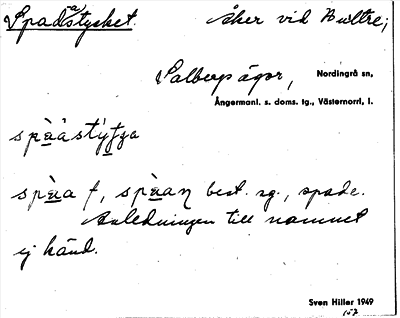 Spadastycket. åker vid Bultre;
Salbergs ägor, Nordingrå sn,
Ångermanl. s. doms. tg., Västernorrl, l.
spa̲ástýt̲ja
spa̲a f, spa̲aŋ best. sg., spade.
Anledningen till namnet
ej känd.
Sven Hiller 1949
157